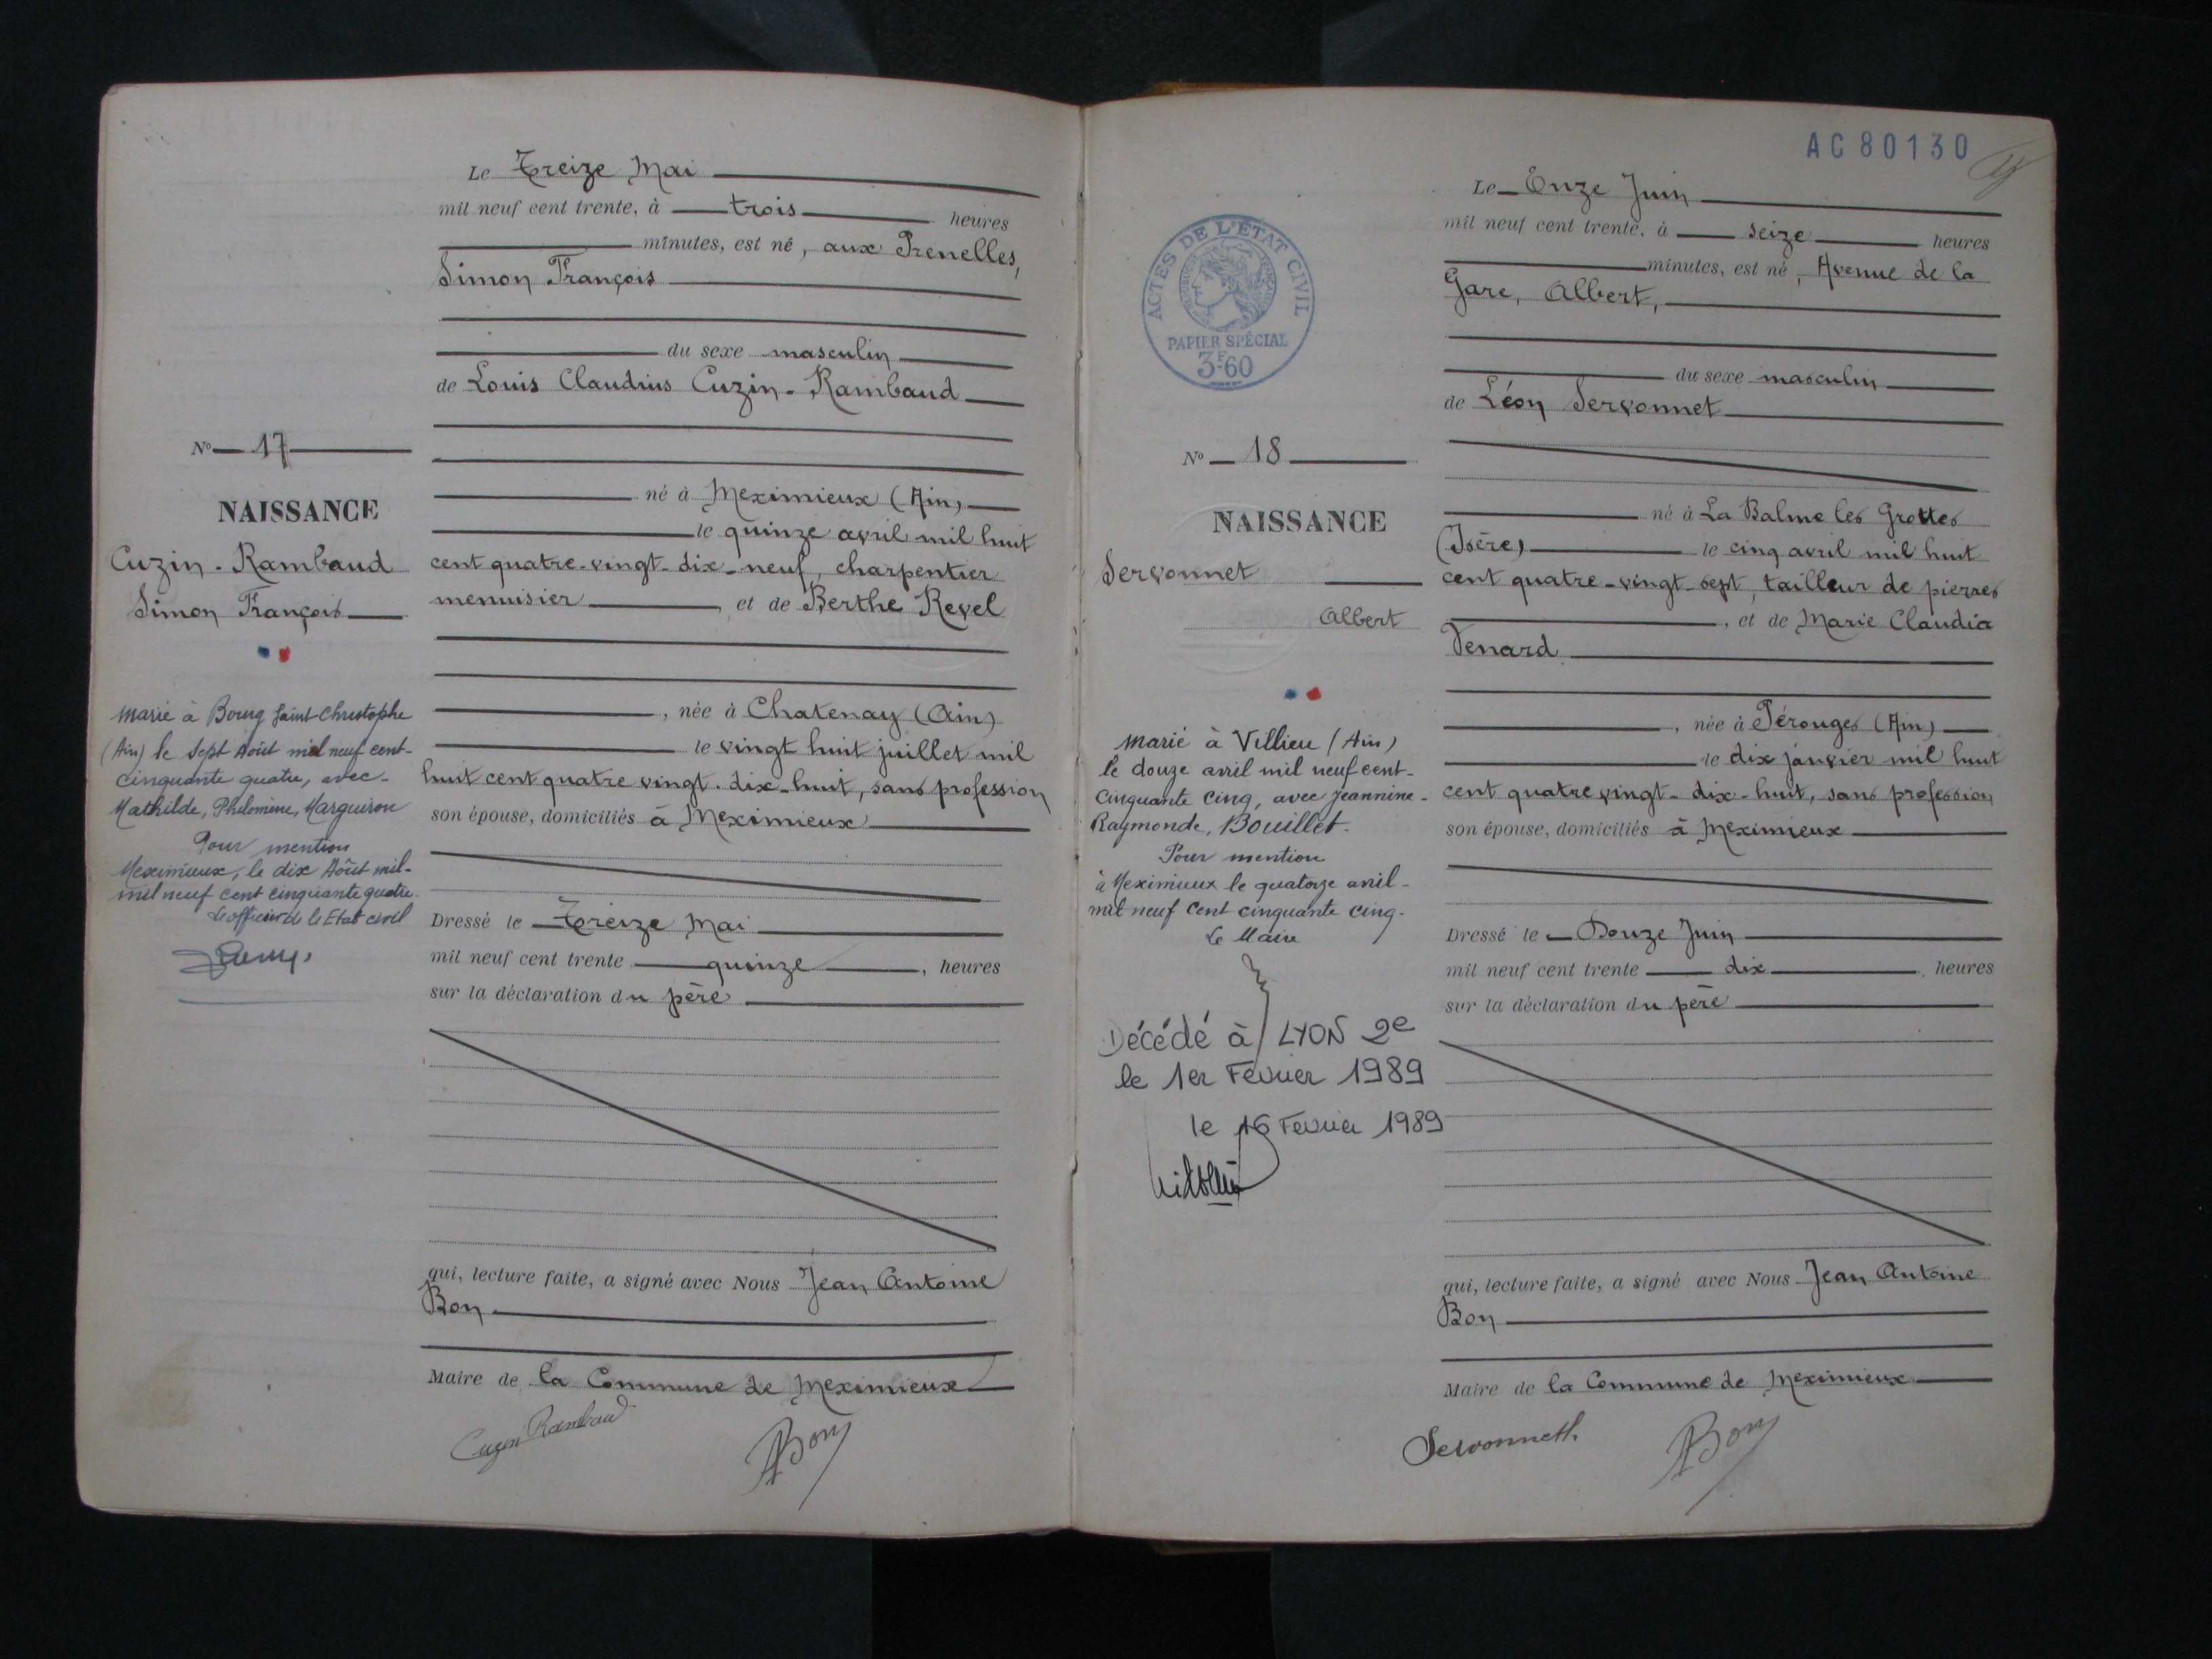 Le Treize Mai
mil neuf cent trente, à trois heures
minutes, est né, aux Prenelles,
Simon François
du sexe masculin
de Louis Claudius Cuzin-Rambaud
né à Meximieux (Ain)
le quinze avril mil huit
cent quatre-vingt-dix-neuf, charpentier
menuisier, et de Berthe Revel
née à Chatenay (Ain)
le vingt huit juillet mil
huit cent quatre vingt-dix-huit, sans profession
son épouse, domiciliés à Meximieux
Dressé le Treize Mai
mil neuf cent trente quinze, heures
sur la déclaration du père
qui, lecture faite, a signé avec Nous Jean Antoine
Bon
Maire de la Commune de Meximieux
Cuzin Rambaud
ABon
No 17
NAISSANCE
Cuzin-Rambaud
Simon François
Marié à Bourg Saint-Christophe
(Ain) le Sept Août mil neuf cent-
cinquante quatre, avec-
Mathilde, Philomène, Marguiron
Pour mention
Meximieux, le dix Août mil-
mil neuf cent cinquante quatre.
L'officier de l'Etat civil
AC 80130
ACTES DE L'ÉTAT CIVIL
PAPIER SPÉCIAL
3F60
Le Onze Juin
mil neuf cent trente, à seize heures
minutes, est né, Avenue de la
Gare, Albert,
du sexe masculin
de Léon Servonnet
né à La Balme les Grottes
(Isère) le cinq avril mil huit
cent quatre-vingt-sept, tailleur de pierres
, et de Marie Claudia
Venard
, née à Pérouges (Ain)
le dix janvier mil huit
cent quatre vingt-dix-huit, sans profession
son épouse, domiciliés à Meximieux
Dressé le Douze Juin
mil neuf cent trente dix, heures
sur la déclaration du père
qui, lecture faite, a signé avec Nous Jean Antoine
Bon
Maire de la Commune de Meximieux
Servonnet
ABon
No 18
NAISSANCE
Servonnet
Albert
Marié à Villieu (Ain)
le douze avril mil neuf cent-
cinquante cinq, avec Jeannine-
Raymonde, Bouillet.
Pour mention
à Meximieux le quatorze avril-
mil neuf cent cinquante cinq.
Le Maire
Décédé à LYON 2e
le 1er Février 1989
le 16 Février 1989